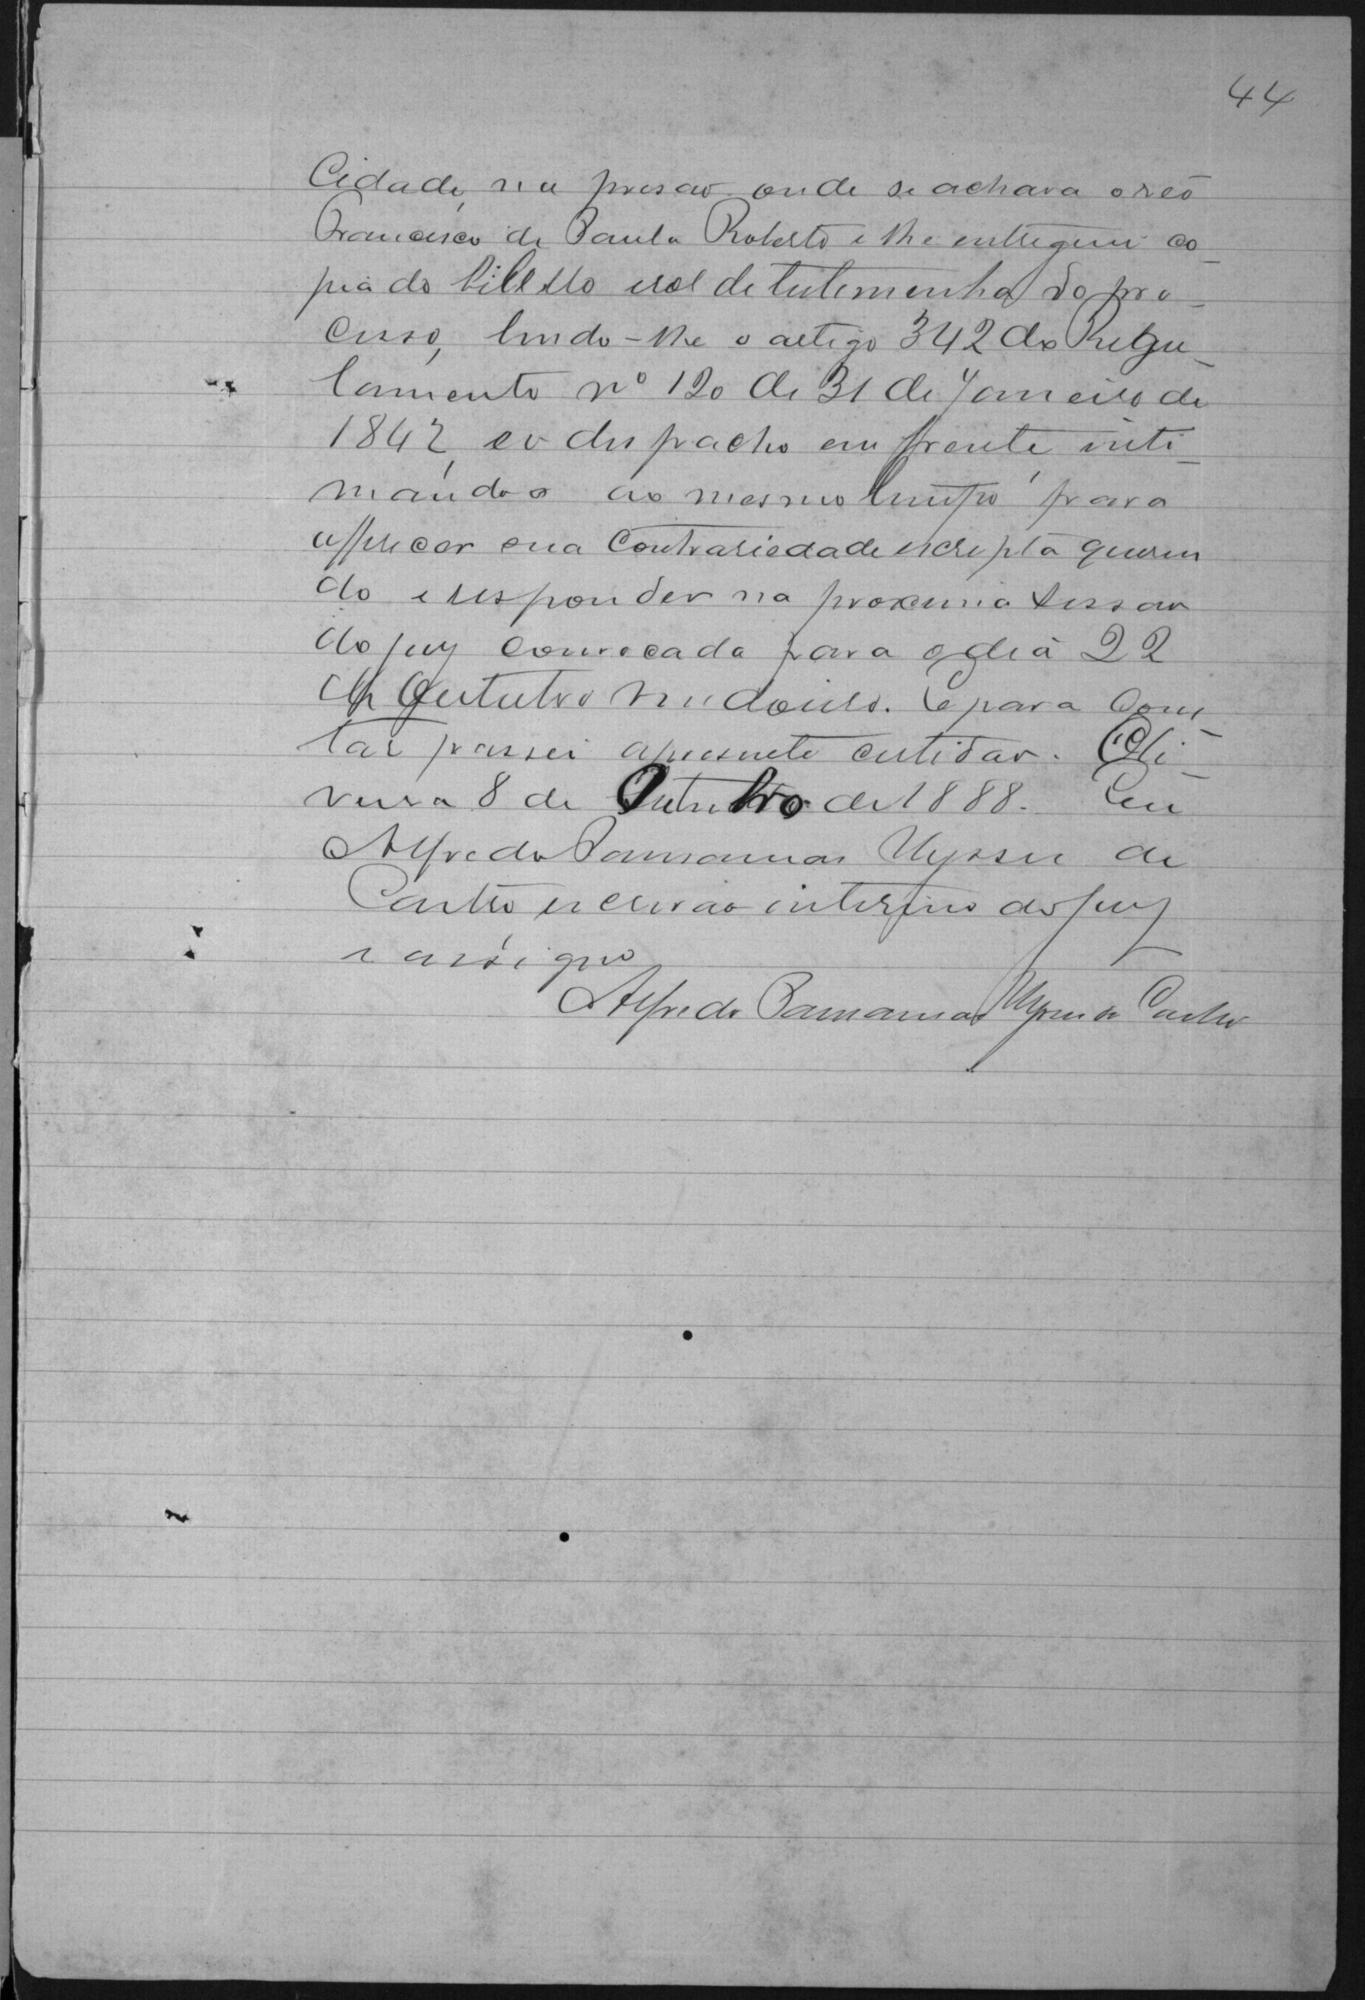 44
Cidade, na prisão onde se achava o reo
Francisco de Paula Roberto e lhe entreguei co-
pia do libello e rol de testemunha do pro-
cesso, lendo-lhe o artigo 342 do Regu-
lamento nº 120 de 31 de Janeiro de
1842, e o despacho em frente inti-
mando o ao mesmo tempo para
offrecer sua contrariedade escripta queren
do e responder na proxima sessão
do jury convocada para o dia 22
de Outubro vindouro. E para cons-
tar passei a presente certidão. Oli-
veira 8 de Outubro de 1888. Eu
Alfredo Parnamas Ulysses de
Castro escrivão interino do jury
e assigno
Alfredo Parnamas Ulysses de Castro